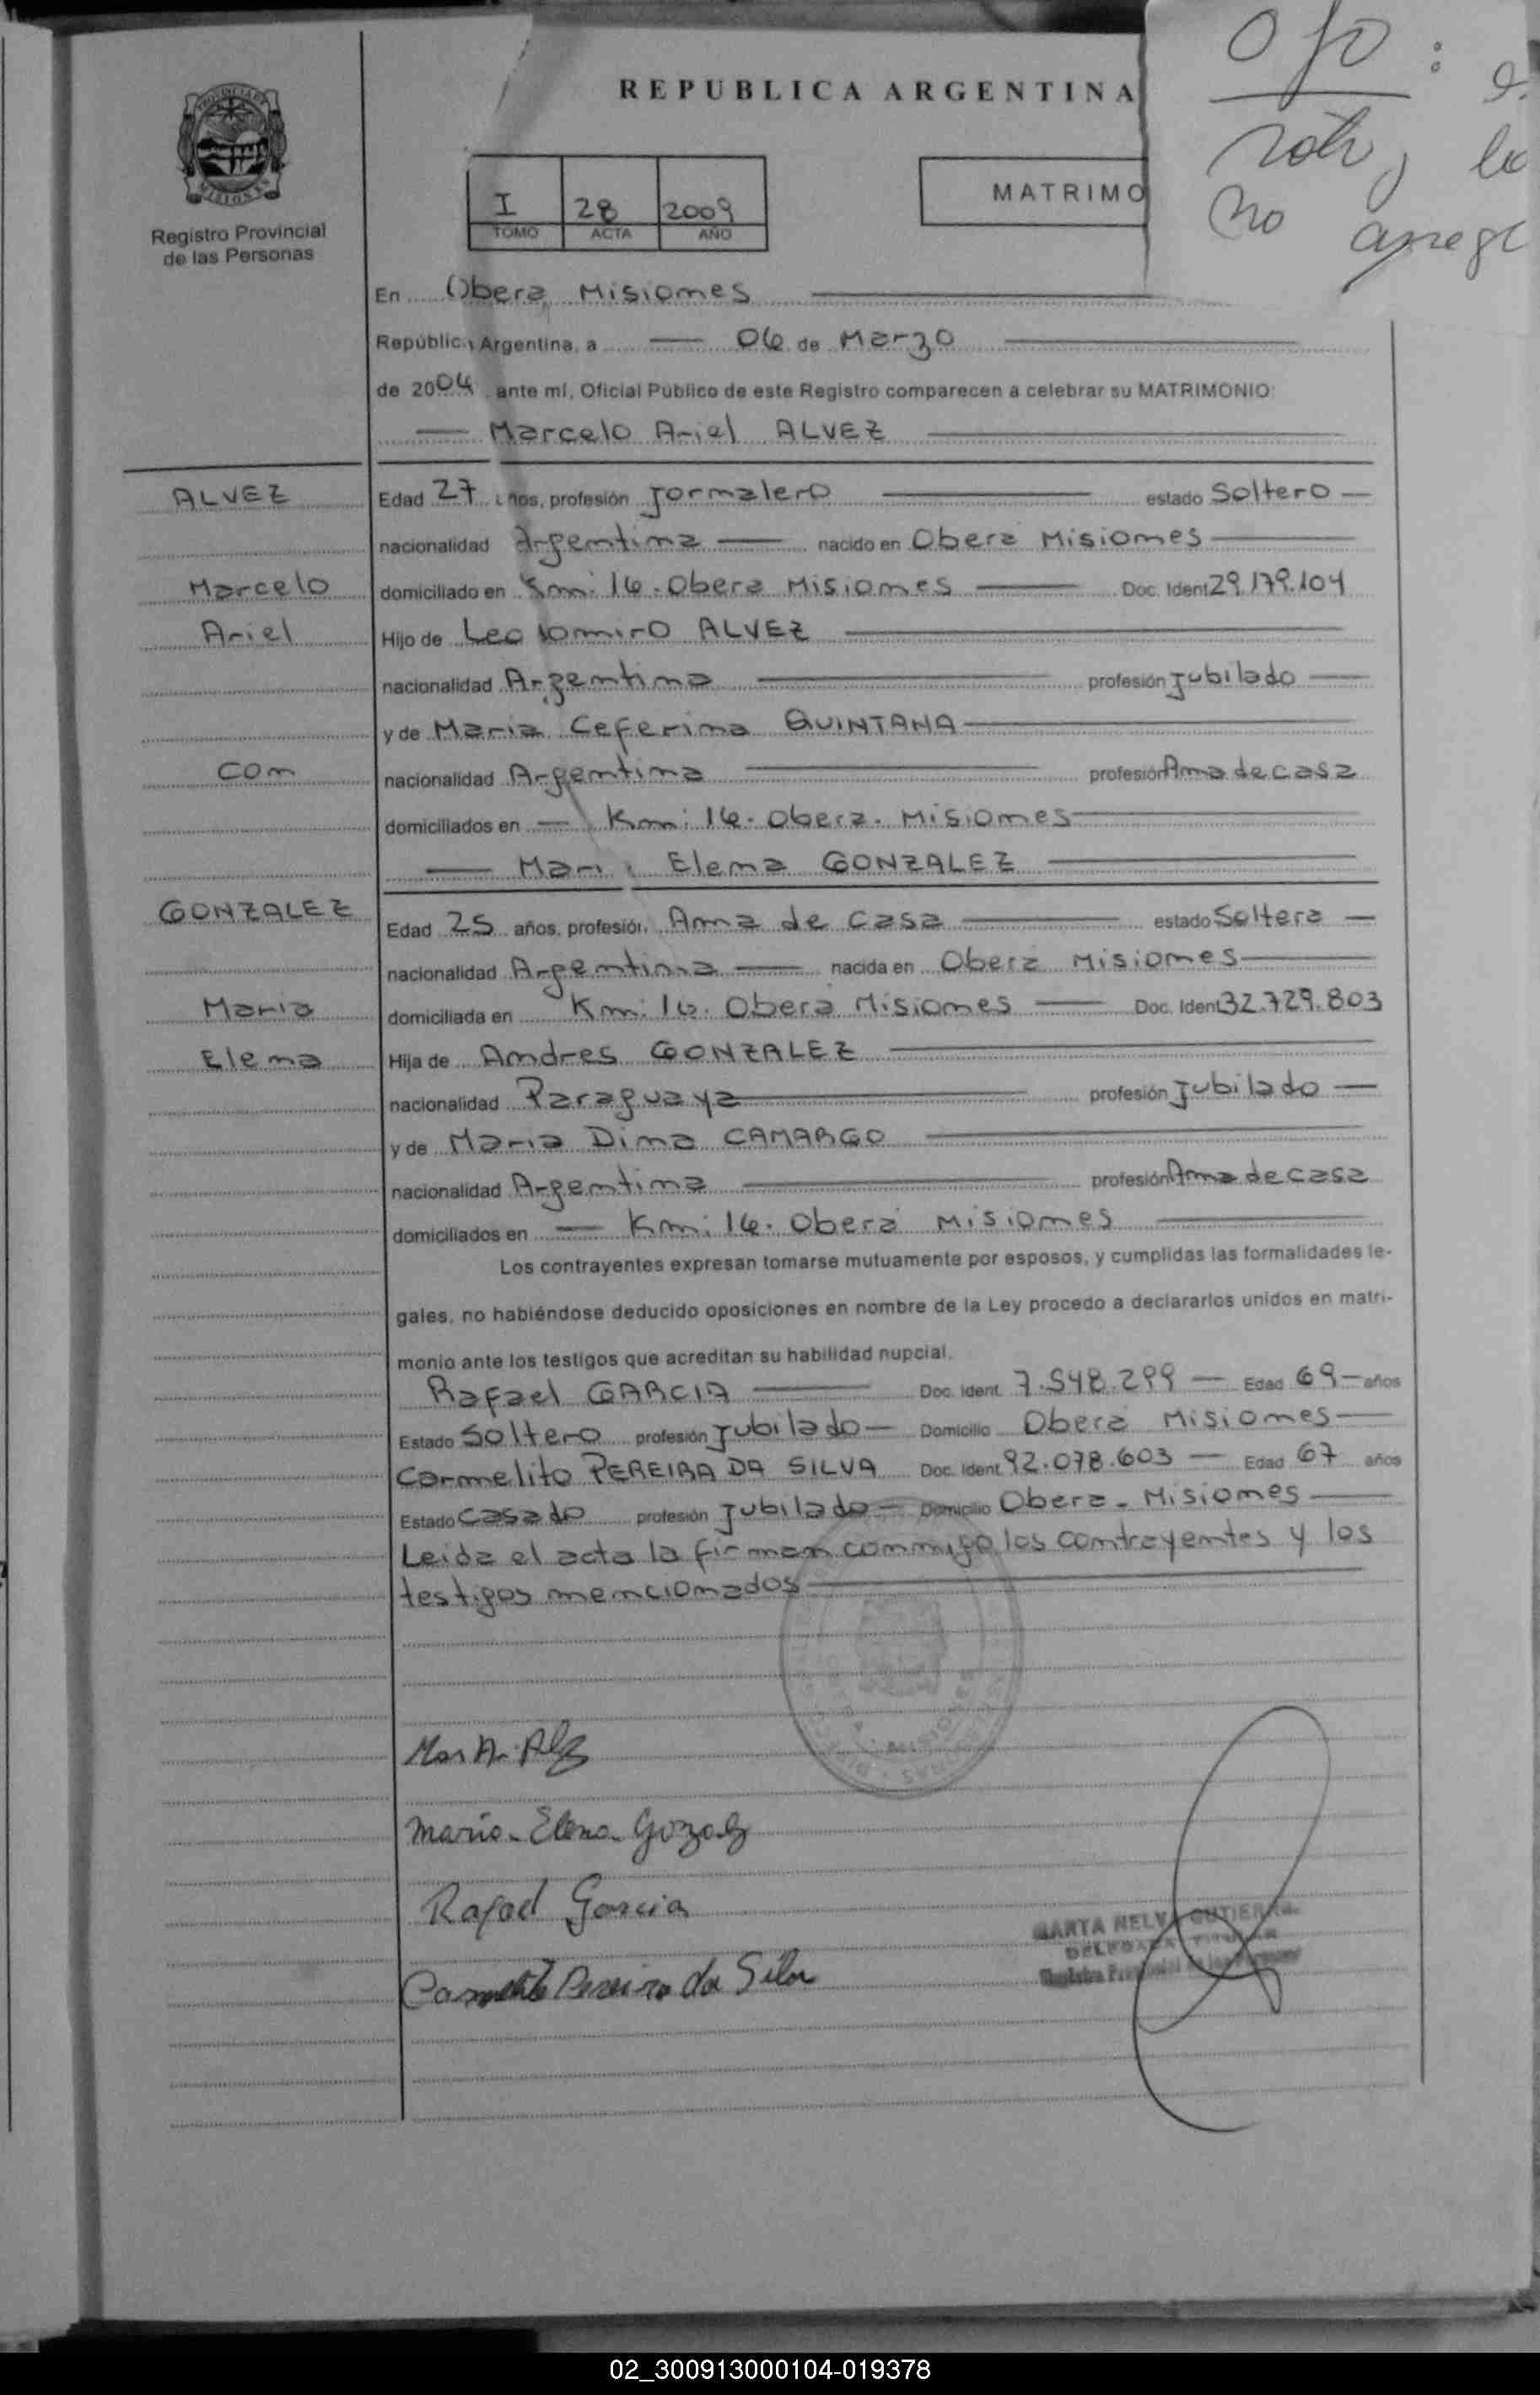 REPUBLICA ARGENTINA
Ojo:
roto, 
no
PROVINCIA DE
MISIONES
Registro Provincial
de las Personas
I 28 2009
TOMO ACTA AÑO
MATRIMO
En Obera Misiones
República Argentina, a 06 de Marzo
de 2004 ante mí, Oficial Público de este Registro comparecen a celebrar su MATRIMONIO:
Marcelo Ariel ALVEZ
ALVEZ
Edad 27 años, profesión Jornalero estado Soltero
nacionalidad Argentina nacido en Oberá Misiones
Marcelo
domiciliado en Km: 16. Obera Misiones Doc. Ident 29.179.104
Ariel
Hijo de Leodomiro ALVEZ
nacionalidad Argentina profesión Jubilado
y de Maria Ceferina QUINTANA
Con
nacionalidad Argentina profesión Ama de casa
domiciliados en Km: 16. Obera. Misiones
Maria Elena GONZALEZ
GONZALEZ
Edad 25 años, profesión Ama de casa estado Soltera
nacionalidad Argentina nacida en Obera Misiones
Maria
domiciliada en Km: 16. Oberá Misiones Doc. Ident 32.729.803
Elena
Hija de Andres GONZALEZ
nacionalidad Paraguaya profesión Jubilado
y de Maria Dina CAMARGO
nacionalidad Argentina profesión Ama de casa
domiciliados en Km: 16. Oberá Misiones
Los contrayentes expresan tomarse mutuamente por esposos, y cumplidas las formalidades le-
gales, no habiéndose deducido oposiciones en nombre de la Ley procedo a declararlos unidos en matri-
monio ante los testigos que acreditan su habilidad nupcial.
Rafael GARCIA Doc. Ident. 7.548.299 Edad 69 años
Estado Soltero profesión Jubilado Domicilio Oberá Misiones
Carmelito PEREIRA DA SILVA Doc. Ident. 92.078.603 Edad 67 años
Estado Casado profesión Jubilado Domicilio Obera - Misiones
Leida el acta la firman conmigo los contrayentes y los
testigos mencionados
Maria Elena
Rafael Garcia
Pereira da Silva
MARTA NELVA GUTIERREZ
DELEGADA TITULAR
Registro Provincial de las Personas
02_300913000104-019378